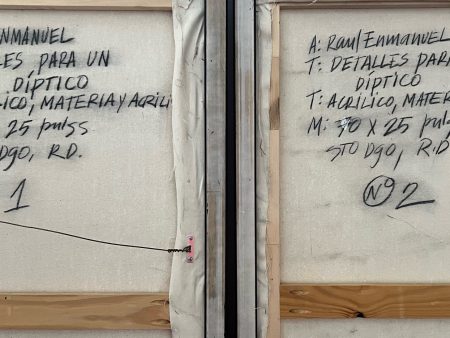 ENMANUEL
LES PARA UN
DÍPTICO
LICO, MATERIA Y ACRILI
25 pulgs
DGO, R.D.
1
A: Raul Enmanuel
T: DETALLES PARA
DÍPTICO
T: ACRILICO, MATER
M: 30 X 25 pul
STO DGO, R.D
Nº 2